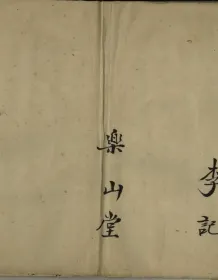 李記
樂山堂